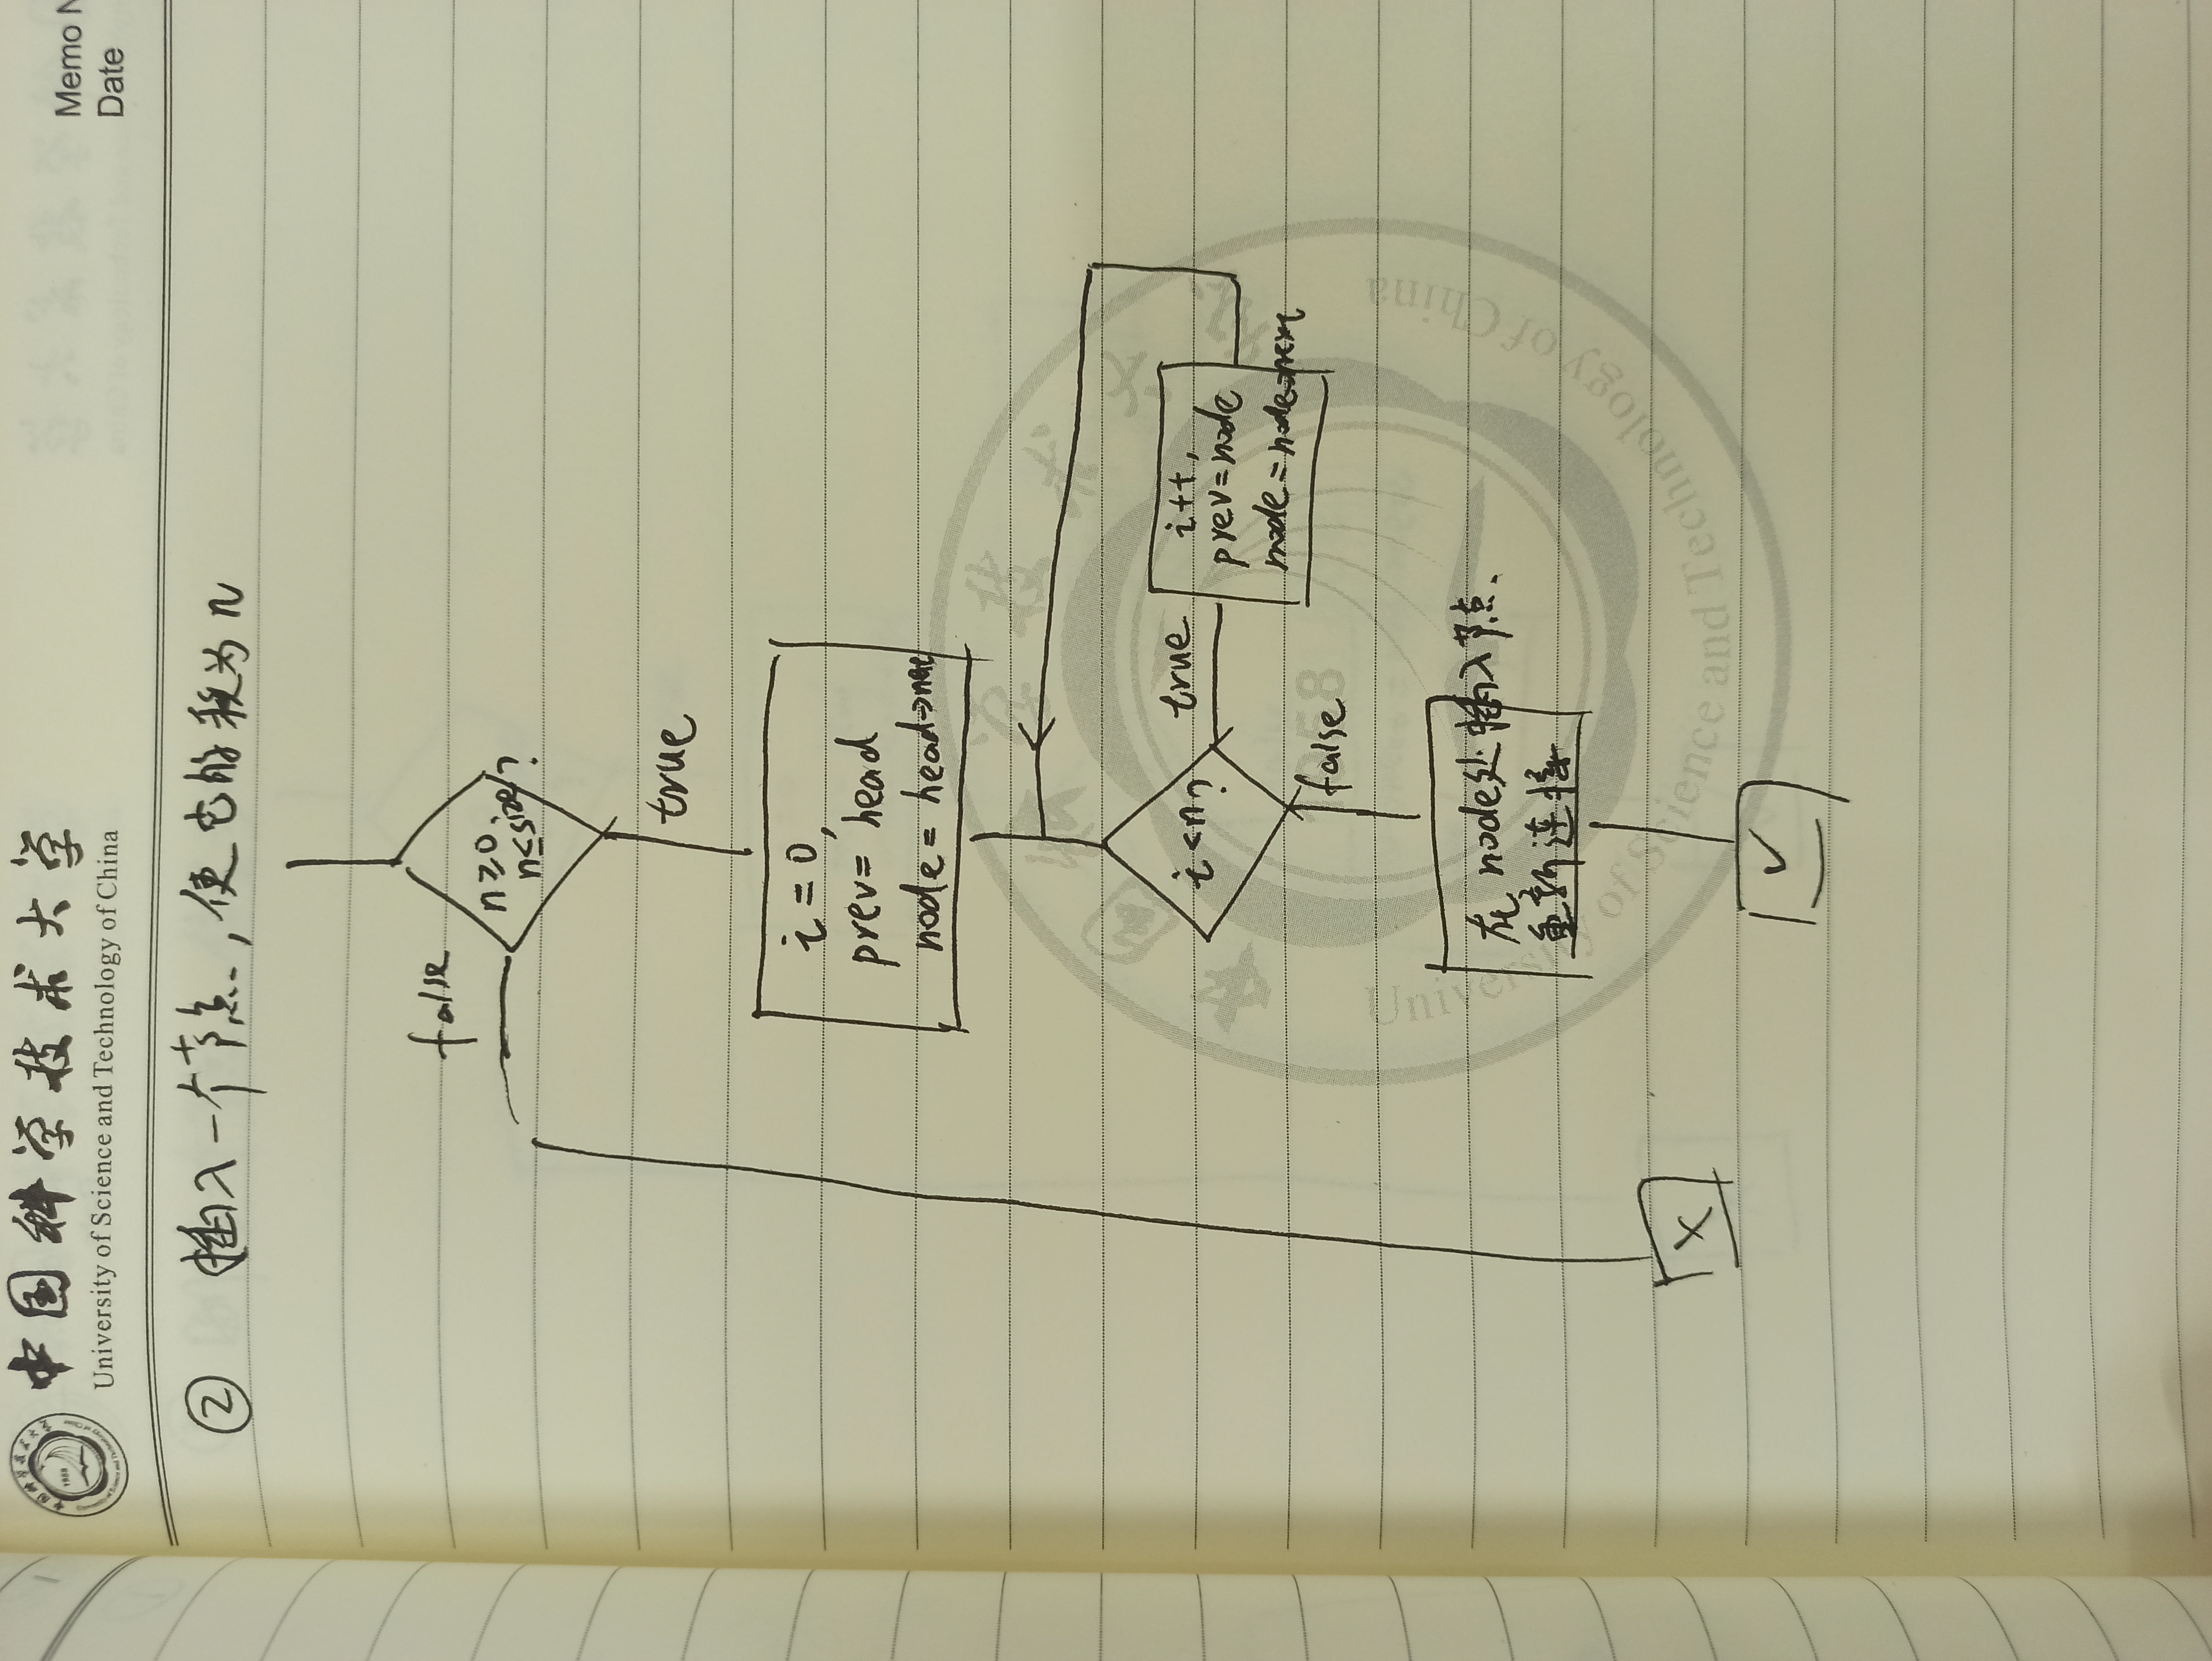 中国科学技术大学
University of Science and Technology of China
Memo N
Date
② 插入一个节点，使它的秩为n
false
n≥0,
n≤size?
true
i=0,
prev= head
node= head→nex
i<n?
true
i++,
prev=node
node=node→next
false
在node处插入节点
重新连接
×
✓
中国科学技术大学
1958
University of Science and Technology of China